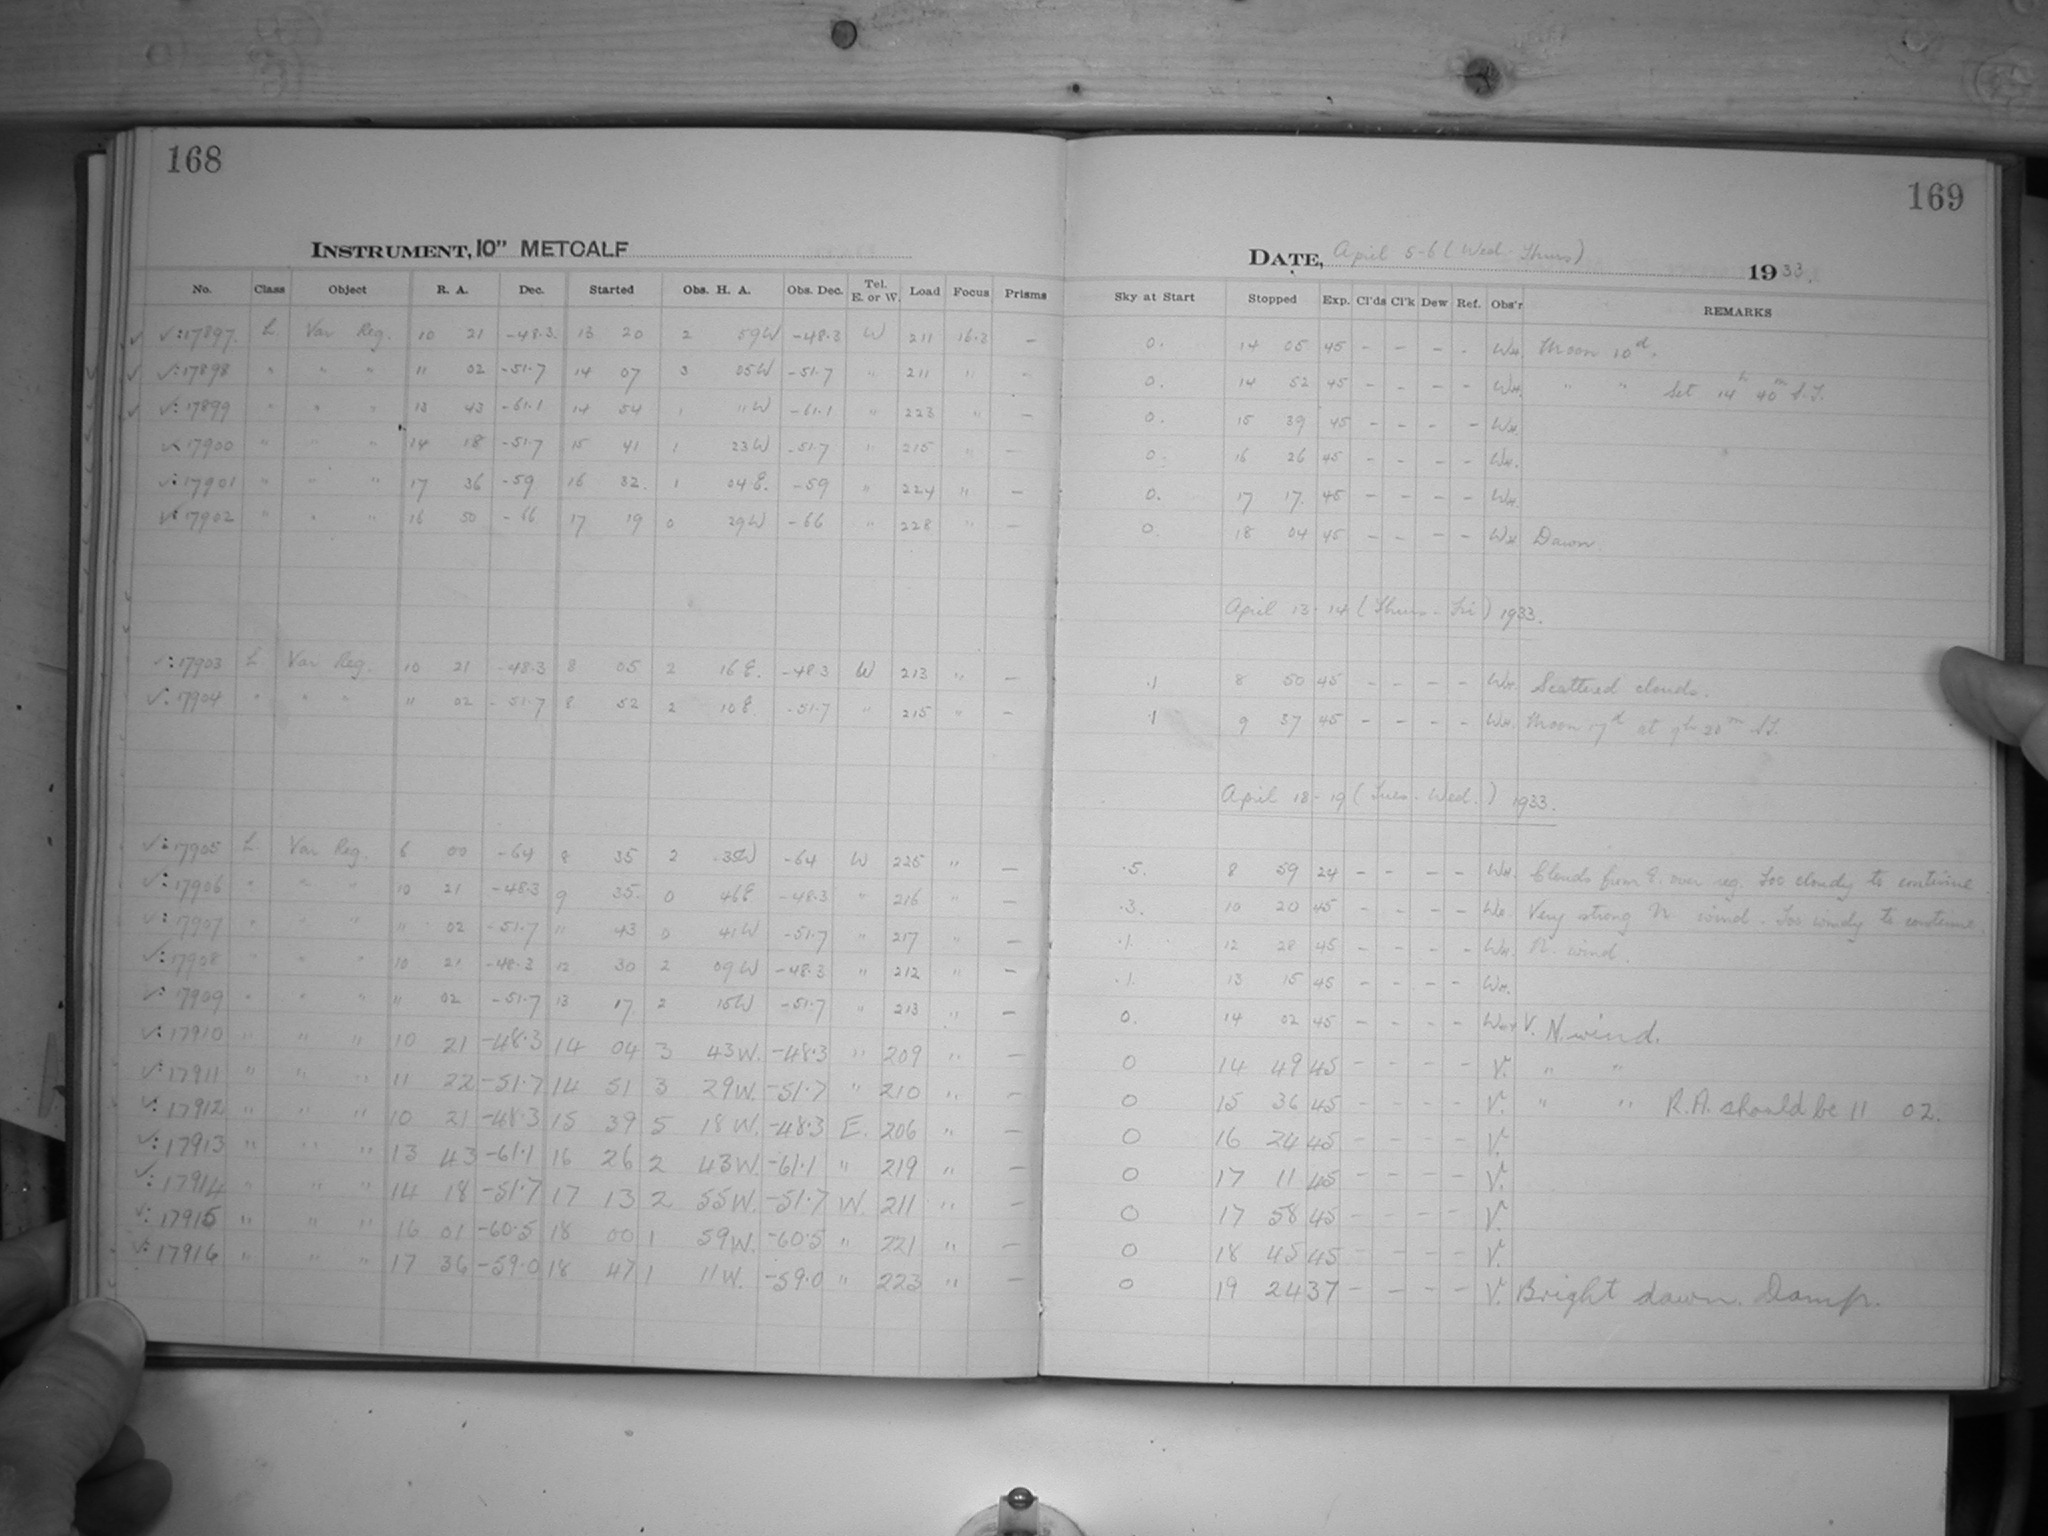 168
INSTRUMENT, 10" METCALF
No. Class Object R. A. Dec. Started Obs. H. A. Obs. Dec. Tel. E. or W. Load Focus Prisms
✓:17897. L Var Reg. 10 21 -48.3. 13 20 2 59W -48.3 W 211 16.3 -
✓:17898 " " " 11 02 -51.7 14 07 3 05W -51.7 " 211 " -
✓:17899 " " " 13 43 -61.1 14 54 1 11W -61.1 " 223 " -
17900 " " " 14 18 -51.7 15 41 1 23W -51.7 " 215 " -
✓:17901 " " " 17 36 -59 16 32. 1 04E. -59 " 224 " -
✓:17902 " " " 16 50 -66 17 19 0 29W -66 " 228 " -
✓:17903 L Var Reg. 10 21 -48.3 8 05 2 16E. -48.3 W 213 " -
✓:17904 " " " 11 02 -51.7 8 52 2 10E -51.7 " 215 " -
✓:17905 L Var Reg. 6 00 -64 8 35 2 35W -64 W 225 " -
✓:17906 " " " 10 21 -48.3 9 35. 0 46E -48.3 " 216 " -
✓:17907 " " " 11 02 -51.7 11 43 0 41W -51.7 " 217 " -
✓:17908 " " " 10 21 -48.3 12 30 2 09W -48.3 " 212 " -
✓:17909 " " " 11 02 -51.7 13 17 2 15W -51.7 " 213 " -
✓:17910 " " " 10 21 -48.3 14 04 3 43W. -48.3 " 209 " -
✓:17911 " " " 11 22 -51.7 14 51 3 29W. -51.7 " 210 " -
✓:17912 " " " 10 21 -48.3 15 39 5 18W. -48.3 E. 206 " -
✓:17913 " " " 13 43 -61.1 16 26 2 43W. -61.1 " 219 " -
✓:17914 " " " 14 18 -51.7 17 13 2 55W. -51.7 W. 211 " -
✓:17915 " " " 16 01 -60.5 18 00 1 59W. -60.5 " 221 " -
✓:17916 " " " 17 36 -59.0 18 47 1 11W. -59.0 " 223 " -
169
DATE, April 5-6 (Wed-Thurs) 1933.
Sky at Start Stopped Exp. Cl'ds Cl'k Dew Ref. Obs'r REMARKS
0. 14 05 45 - - - - WH Moon 10d.
0. 14 52 45 - - - - WH. " " Set 14h 40m S.T.
0. 15 39 45 - - - - WH.
0. 16 26 45 - - - - WH.
0. 17 17. 45 - - - - WH.
0. 18 04 45 - - - - WH Dawn
April 13-14 (Thurs-Fri) 1933.
.1 8 50 45 - - - - WH. Scattered clouds.
.1 9 37 45 - - - - WH. Moon 17d at 9h 20m S.T.
April 18-19 (Tues-Wed.) 1933.
.5. 8 59 24 - - - - WH. Clouds from E. over reg. Too cloudy to continue.
.3. 10 20 45 - - - - WH. Very strong N wind. Too windy to continue.
.1. 12 28 45 - - - - WH. N. wind.
.1. 13 15 45 - - - - WH.
0. 14 02 45 - - - - WH+V. N. wind.
0 14 49 45 - - - - V. " "
0 15 36 45 - - - - V. " " R.A. should be 11 02.
0 16 24 45 - - - - V.
0 17 11 45 - - - - V.
0 17 58 45 - - - - V.
0 18 45 45 - - - - V.
0 19 24 37 - - - - V. Bright dawn. Damp.